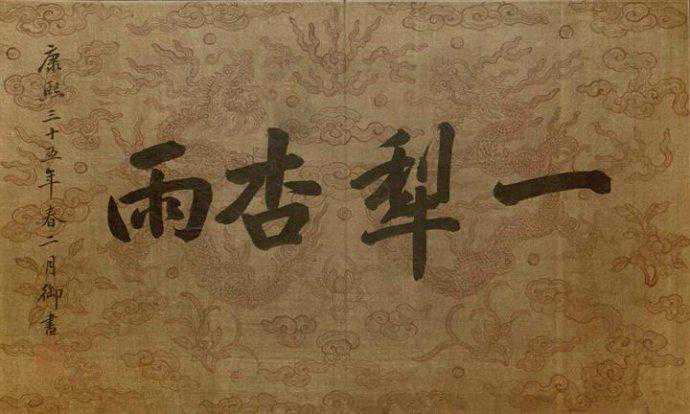 一犁杏雨
康熙三十五年春二月御書